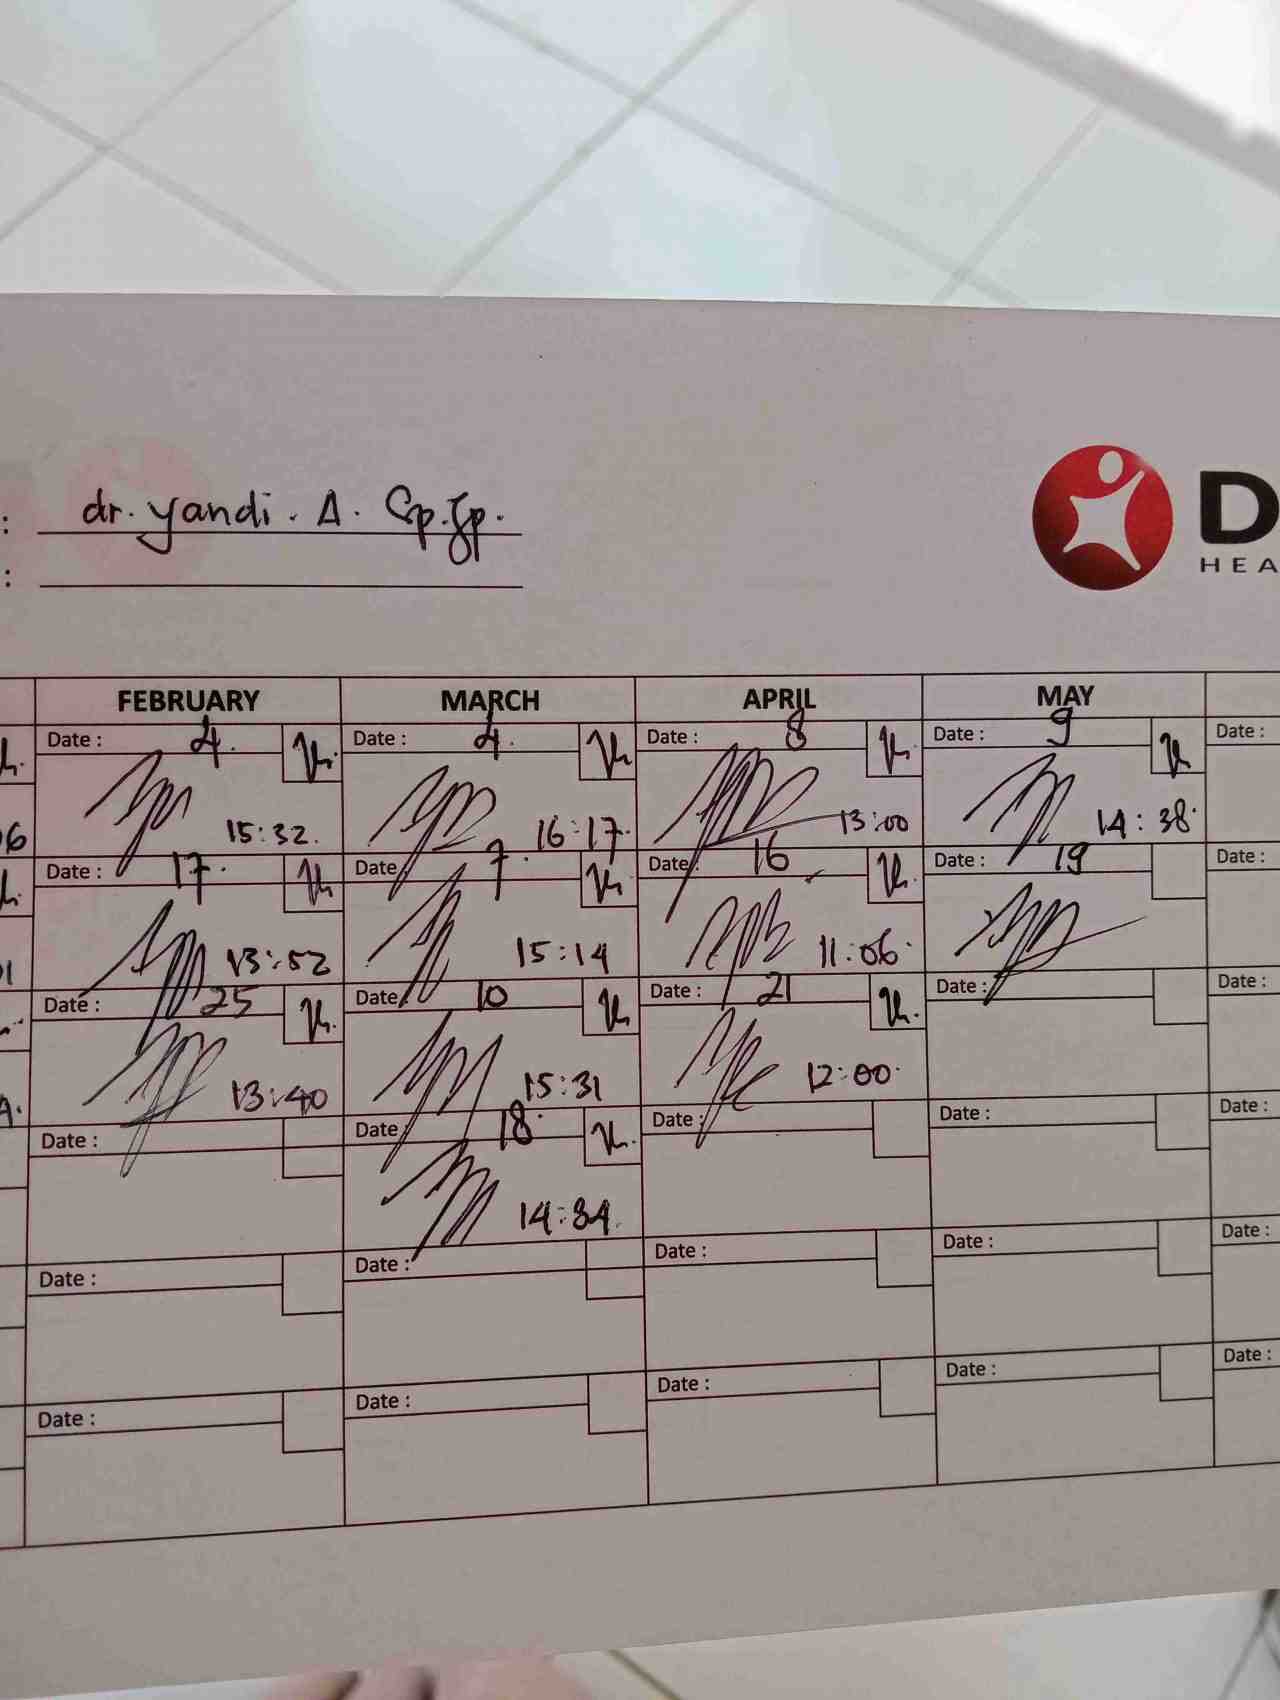 : dr. yandi. A. Sp.Jp.
:
D
HEA
FEBRUARY MARCH APRIL MAY
Date : 4. Date : 4. Date : 8 Date : 9 Date :
06 15:32. 16:17. 13:00 14:38.
Date : 17. Date : 7. Date : 16 Date : 19 Date :
01 13:52 15:14 11:06.
Date : 25 Date : 10 Date : 21 Date : Date :
A. 13:40 15:31 12:00.
Date : Date : 18 Date : Date : Date :
14:34.
Date : Date : Date : Date : Date :
Date : Date : Date : Date : Date :